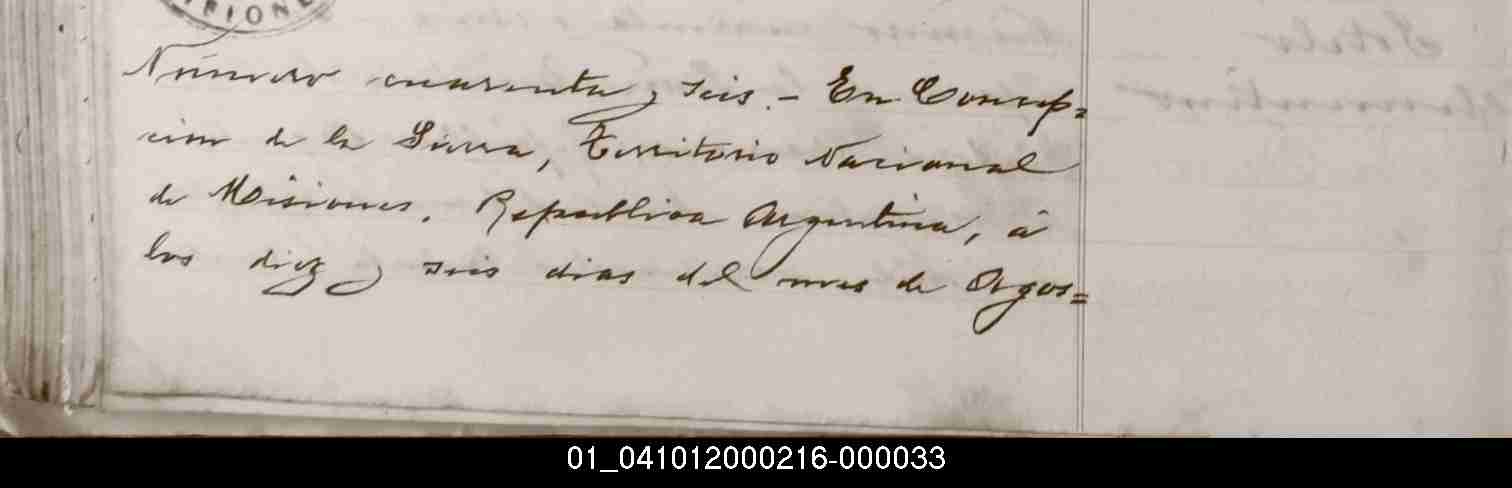 Número cuarenta y seis.- En Concep=
cion de la Sierra, Territorio Nacional
de Misiones, República Argentina, á
los diez y seis dias del mes de Agos=
01_041012000216-000033